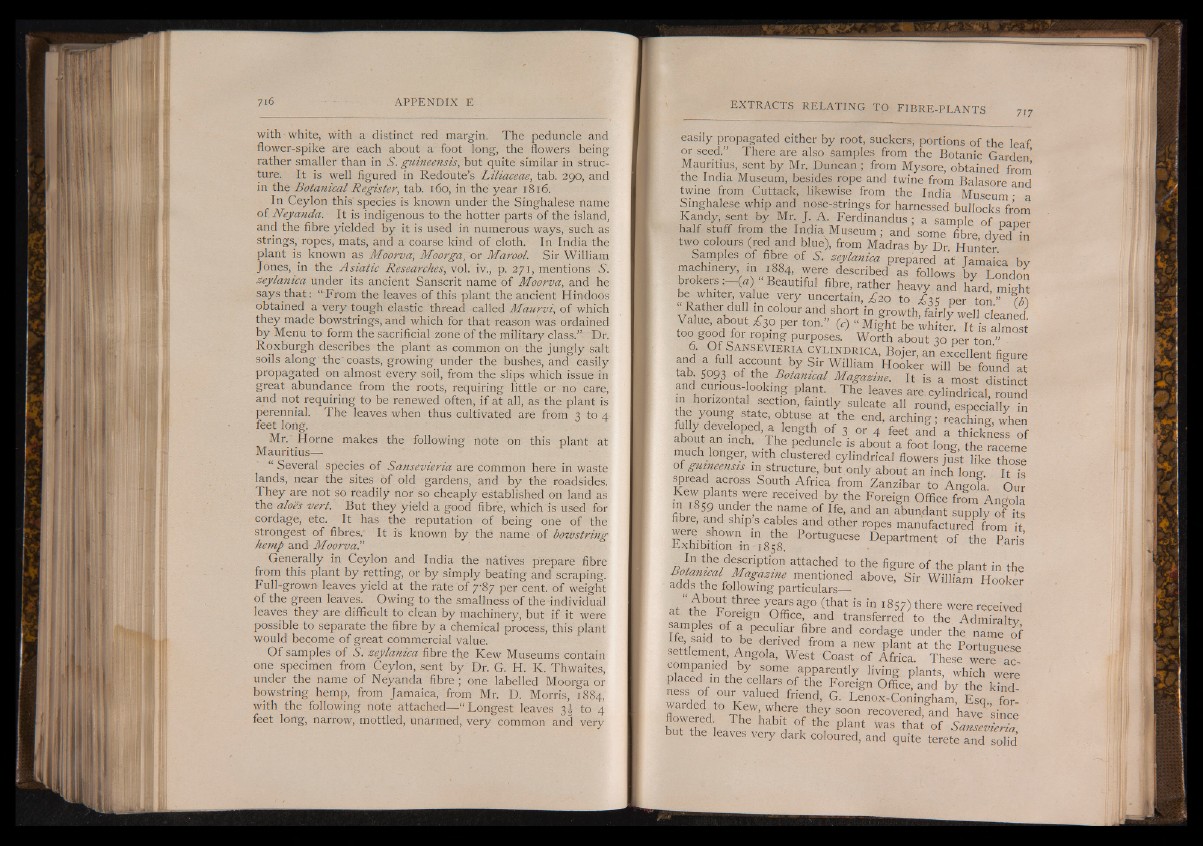 716 APPENDIX E
with white, with a distinct red margin. The peduncle and
flower-spike are each about a foot long, the flowers being
rather smaller than in S. guineensis, but quite similar in struc-
ture. It is well figured in Redoute's Liliaceae, tab. 290, and
in the Botanical Register, tab. 160, in the year 1816.
In Ceylon this species is known under the Singhalese name
of Neyanda. It is indigenous to the hotter parts of the island,
and the fibre yielded by it is used in numerous ways, such as
strings, ropes, mats, and a coarse kind of cloth. In India the
plant is known as Moorva, Moorga, or Marool. Sir William
Jones, in the Asiatic Researches, vol. iv., p. 271, mentions S.
zeylanica under its ancient Sanscrit name of Moorva, and he
says that: "From the leaves of this plant the ancient Hindoos
obtained a very tough elastic thread called Maurvi, of which
they made bowstrings, and which for that reason was ordained
by Menu to form the sacrificial zone of the military class." Dr.
Roxburgh describes the plant as common on the jungly salt
soils along the coasts, growing under the bushes, and easily
propagated on almost every soil, from the slips which issue in
great abundance from the roots, requiring little or no care,
and not requiring to be renewed often, if at all, as the plant is
perennial. The leaves when thus cultivated are from 3 to 4
feet long.
Mr. Horne makes the following note on this plant at
Mauritius—
"Several species of Sansevieria are common here in waste
lands, near the sites of old gardens, and by the roadsides.
They are not so readily nor so cheaply established on land as
the aloës vert. But they yield a good fibre, which is used for
cordage, etc. It has the reputation of being one of the
strongest of fibres. It is known by the name of bowstring
hemp and Moorva."
Generally in Ceylon and India the natives prepare fibre
from this plant by retting, or by simply beating and scraping.
Full-grown leaves yield at the rate of 7·87 per cent. of weight
of the green leaves. Owing to the smallness of the individual
leaves they are difficult to clean by machinery, but if it were
possible to separate the fibre by a chemical process, this plant
would become of great commercial value.
Of samples of S. zeylanica fibre the Kew Museums contain
one specimen from Ceylon, sent by Dr. G. H. K. Thwaites,
under the name of Neyanda fibre; one labelled Moorga or
bowstring hemp, from Jamaica, from Mr. D. Morris, 1884,
with the following note attached—"Longest leaves 3½ to 4
feet long, narrow, mottled, unarmed, very common and very
EXTRACTS RELATING TO FIBRE-PLANTS 717
easily propagated either by root, suckers, portions of the leaf,
or seed." There are also samples from the Botanic Garden,
Mauritius, sent by Mr. Duncan; from Mysore, obtained from
the India Museum, besides rope and twine from Balasore and
twine from Cuttack, likewise from the India Museum; a
Singhalese whip and nose-strings for harnessed bullocks from
Kandy, sent by Mr. J. A. Ferdinandus; a sample of paper
half stuff from the India Museum; and some fibre, dyed in
two colours (red and blue), from Madras by Dr. Hunter.
Samples of fibre of S. zeylanica prepared at Jamaica by
machinery, in 1884, were described as follows by London
brokers:—(a) "Beautiful fibre, rather heavy and hard, might
be whiter, value very uncertain, £20 to £35 per ton." (b)
"Rather dull in colour and short in growth, fairly well cleaned.
Value, about £30 per ton." (c) "Might be whiter. It is almost
too good for roping purposes. Worth about 30 per ton."
6. Of SANSEVIERIA CYLINDRICA, Bojer, an excellent figure
and a full account by Sir William Hooker will be found at
tab. 5093 of the Botanical Magazine. It is a most distinct
and curious-looking plant. The leaves are cylindrical, round
in horizontal section, faintly sulcate all round, especially in
the young state, obtuse at the end, arching; reaching, when
fully developed, a length of 3 or 4 feet and a thickness of
about an inch. The peduncle is about a foot long, the raceme
much longer, with clustered cylindrical flowers just like those
of guineensis in structure, but only about an inch long. It is
spread across South Africa from Zanzibar to Angola. Our
Kew plants were received by the Foreign Office from Angola
in 1859 under the name of Ife, and an abundant supply of its
fibre, and ship's cables and other ropes manufactured from it,
were shown in the Portuguese Department of the Paris
Exhibition in 1858.
In the description attached to the figure of the plant in the
Botanical Magazine mentioned above, Sir William Hooker
adds the following particulars—
"About three years ago (that is in 1857) there were received
at the Foreign Office, and transferred to the Admiralty,
samples of a peculiar fibre and cordage under the name of
Ife, said to be derived from a new plant at the Portuguese
settlement, Angola, West Coast of Africa. These were ac-
companied by some apparently living plants, which were
placed in the cellars of the Foreign Office, and by the kind-
ness of our valued friend, G. Lenox-Coningham, Esq., for-
warded to Kew, where they soon recovered, and have since
flowered. The habit of the plant was that of Sansevieria,
but the leaves very dark coloured, and quite terete and solid